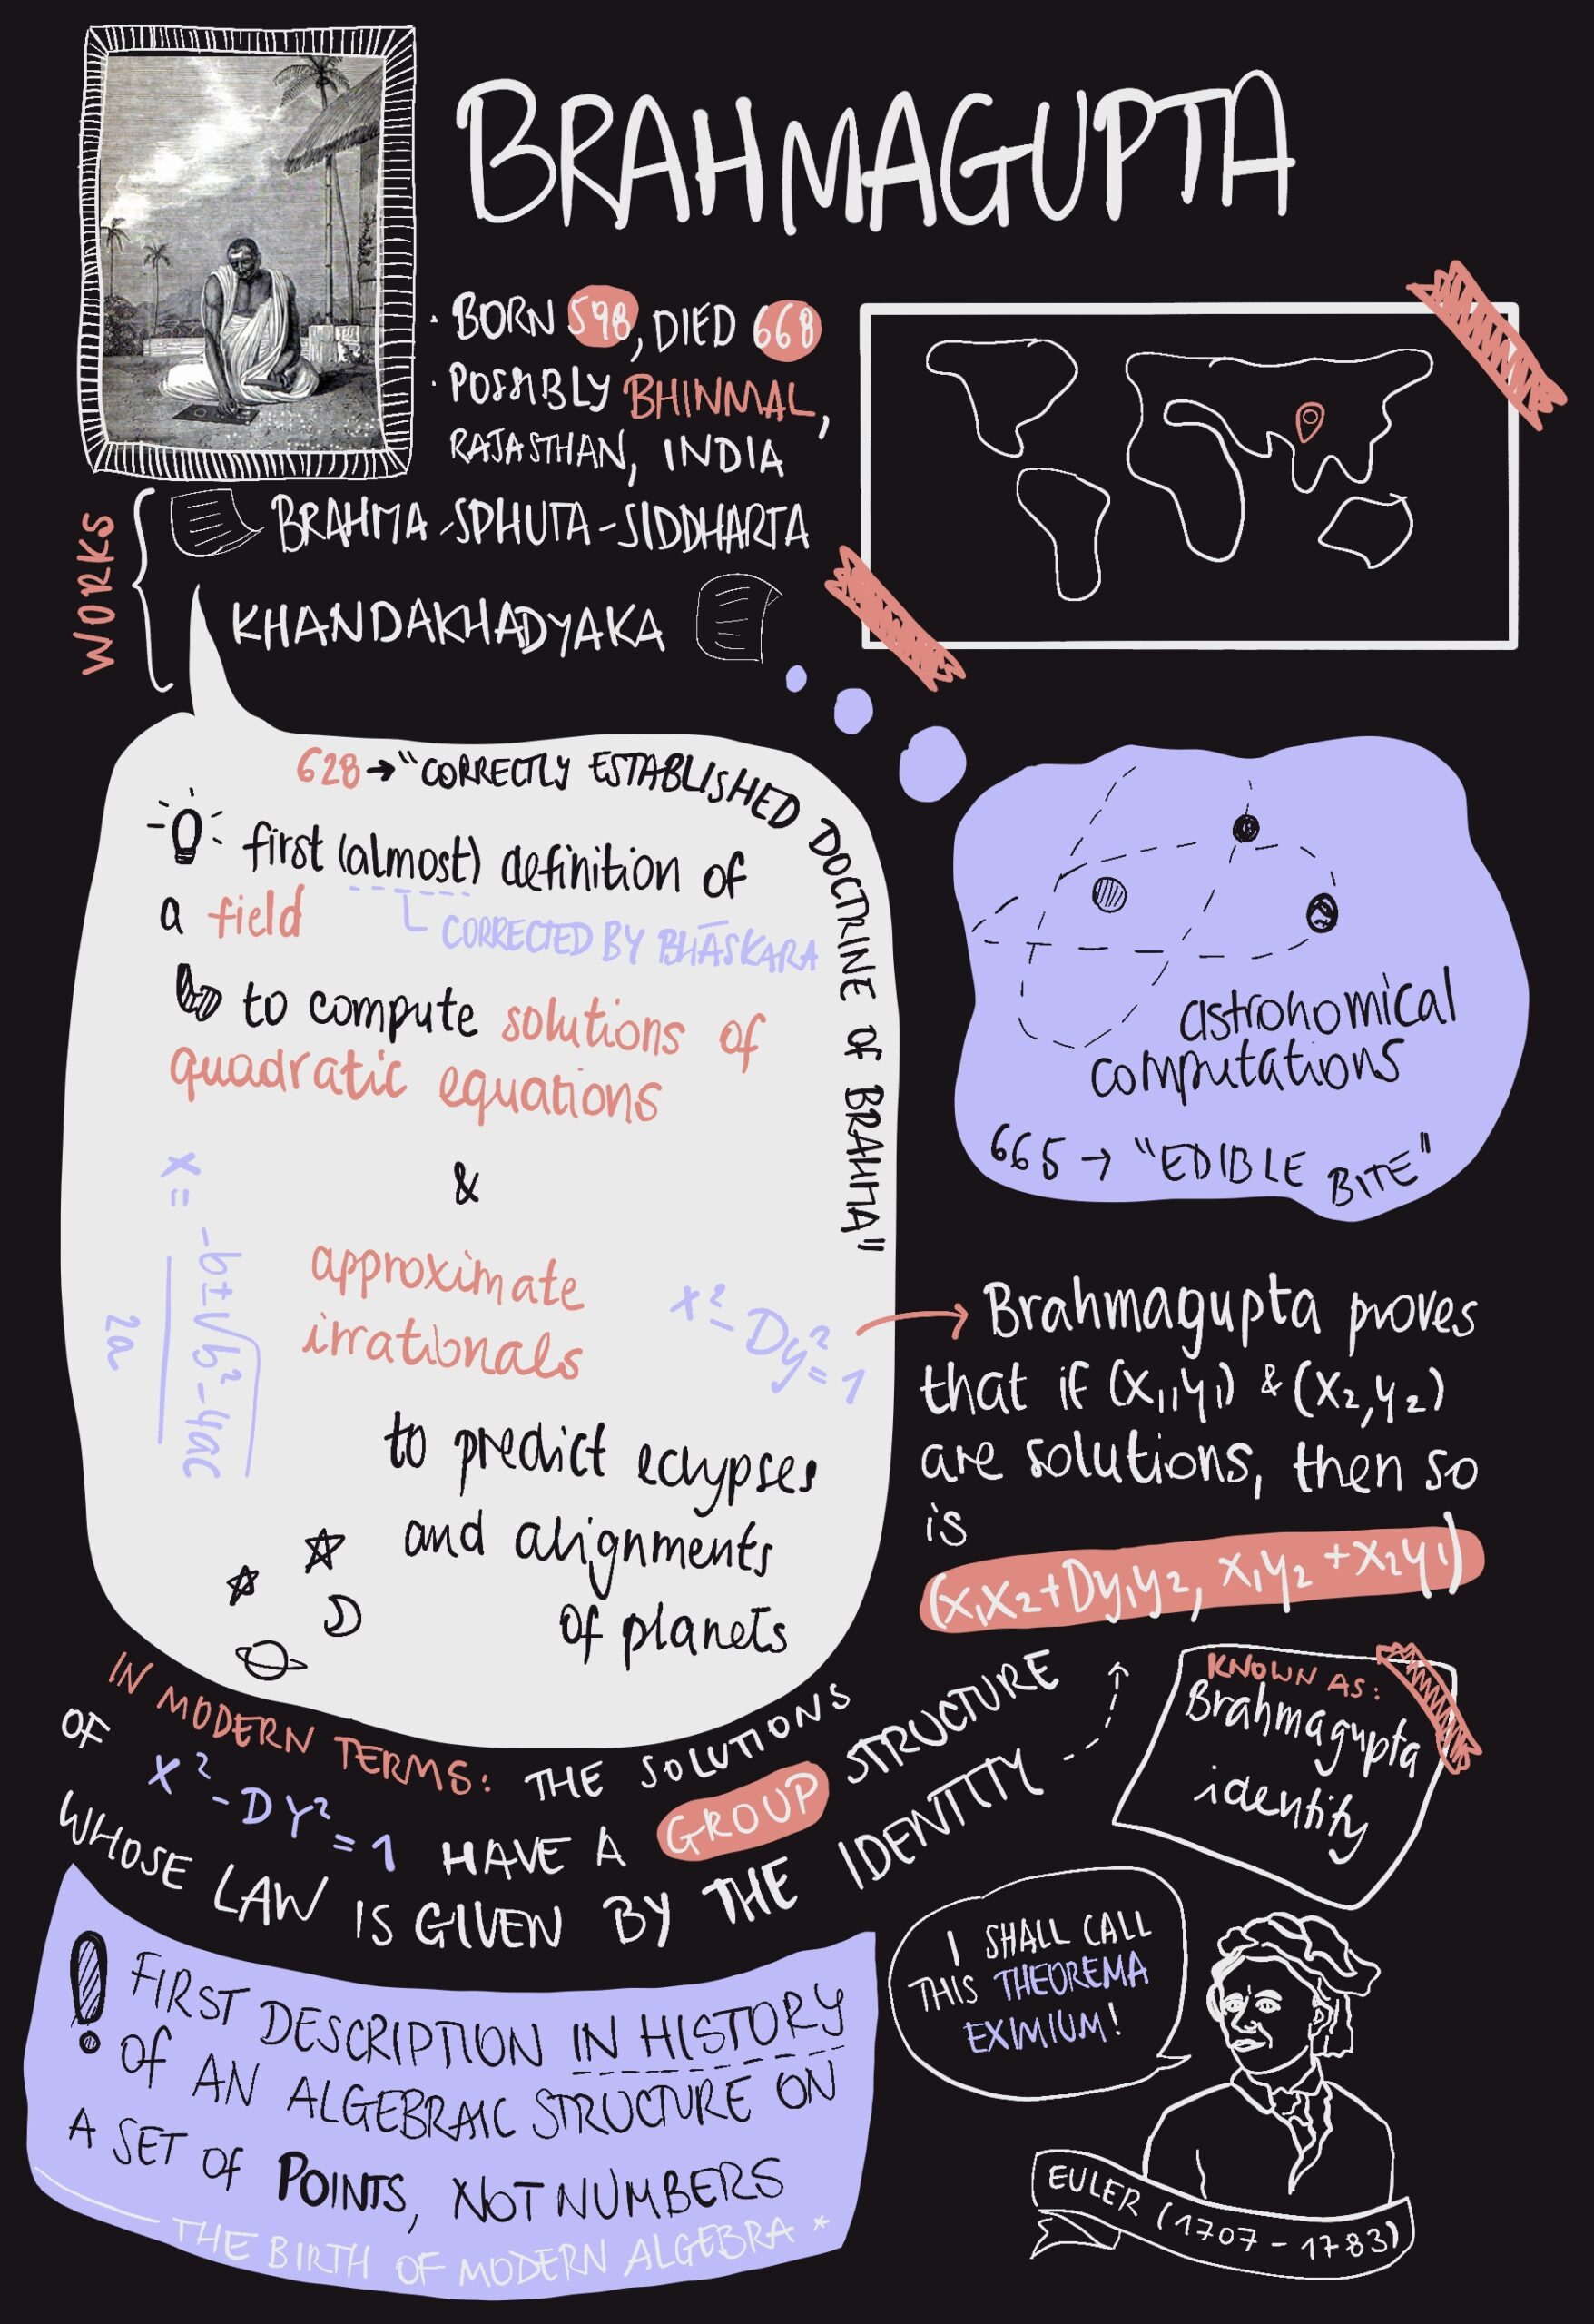 BRAHMAGUPTA
· BORN 598, DIED 668
· POSSIBLY BHINMAL,
RAJASTHAN, INDIA
WORKS
BRAHMA-SPHUTA-SIDDHARTA
KHANDAKHADYAKA
628 → "CORRECTLY ESTABLISHED DOCTRINE OF BRAHMA"
first (almost) definition of
a field
CORRECTED BY BHĀSKARA
to compute solutions of
quadratic equations
&
x = -b±√b²-4ac
2a
approximate
irrationals
x²-Dy²=1
to predict eclypses
and alignments
of planets
astronomical
computations
665 → "EDIBLE BITE"
Brahmagupta proves
that if (x₁,y₁) & (x₂,y₂)
are solutions, then so
is
(x₁x₂+Dy₁y₂, x₁y₂+x₂y₁)
KNOWN AS:
Brahmagupta
identity
IN MODERN TERMS: THE SOLUTIONS
OF X²-DY²=1 HAVE A GROUP STRUCTURE
WHOSE LAW IS GIVEN BY THE IDENTITY
! FIRST DESCRIPTION IN HISTORY
OF AN ALGEBRAIC STRUCTURE ON
A SET OF POINTS, NOT NUMBERS
THE BIRTH OF MODERN ALGEBRA *
I SHALL CALL
THIS THEOREMA
EXIMIUM!
EULER (1707-1783)